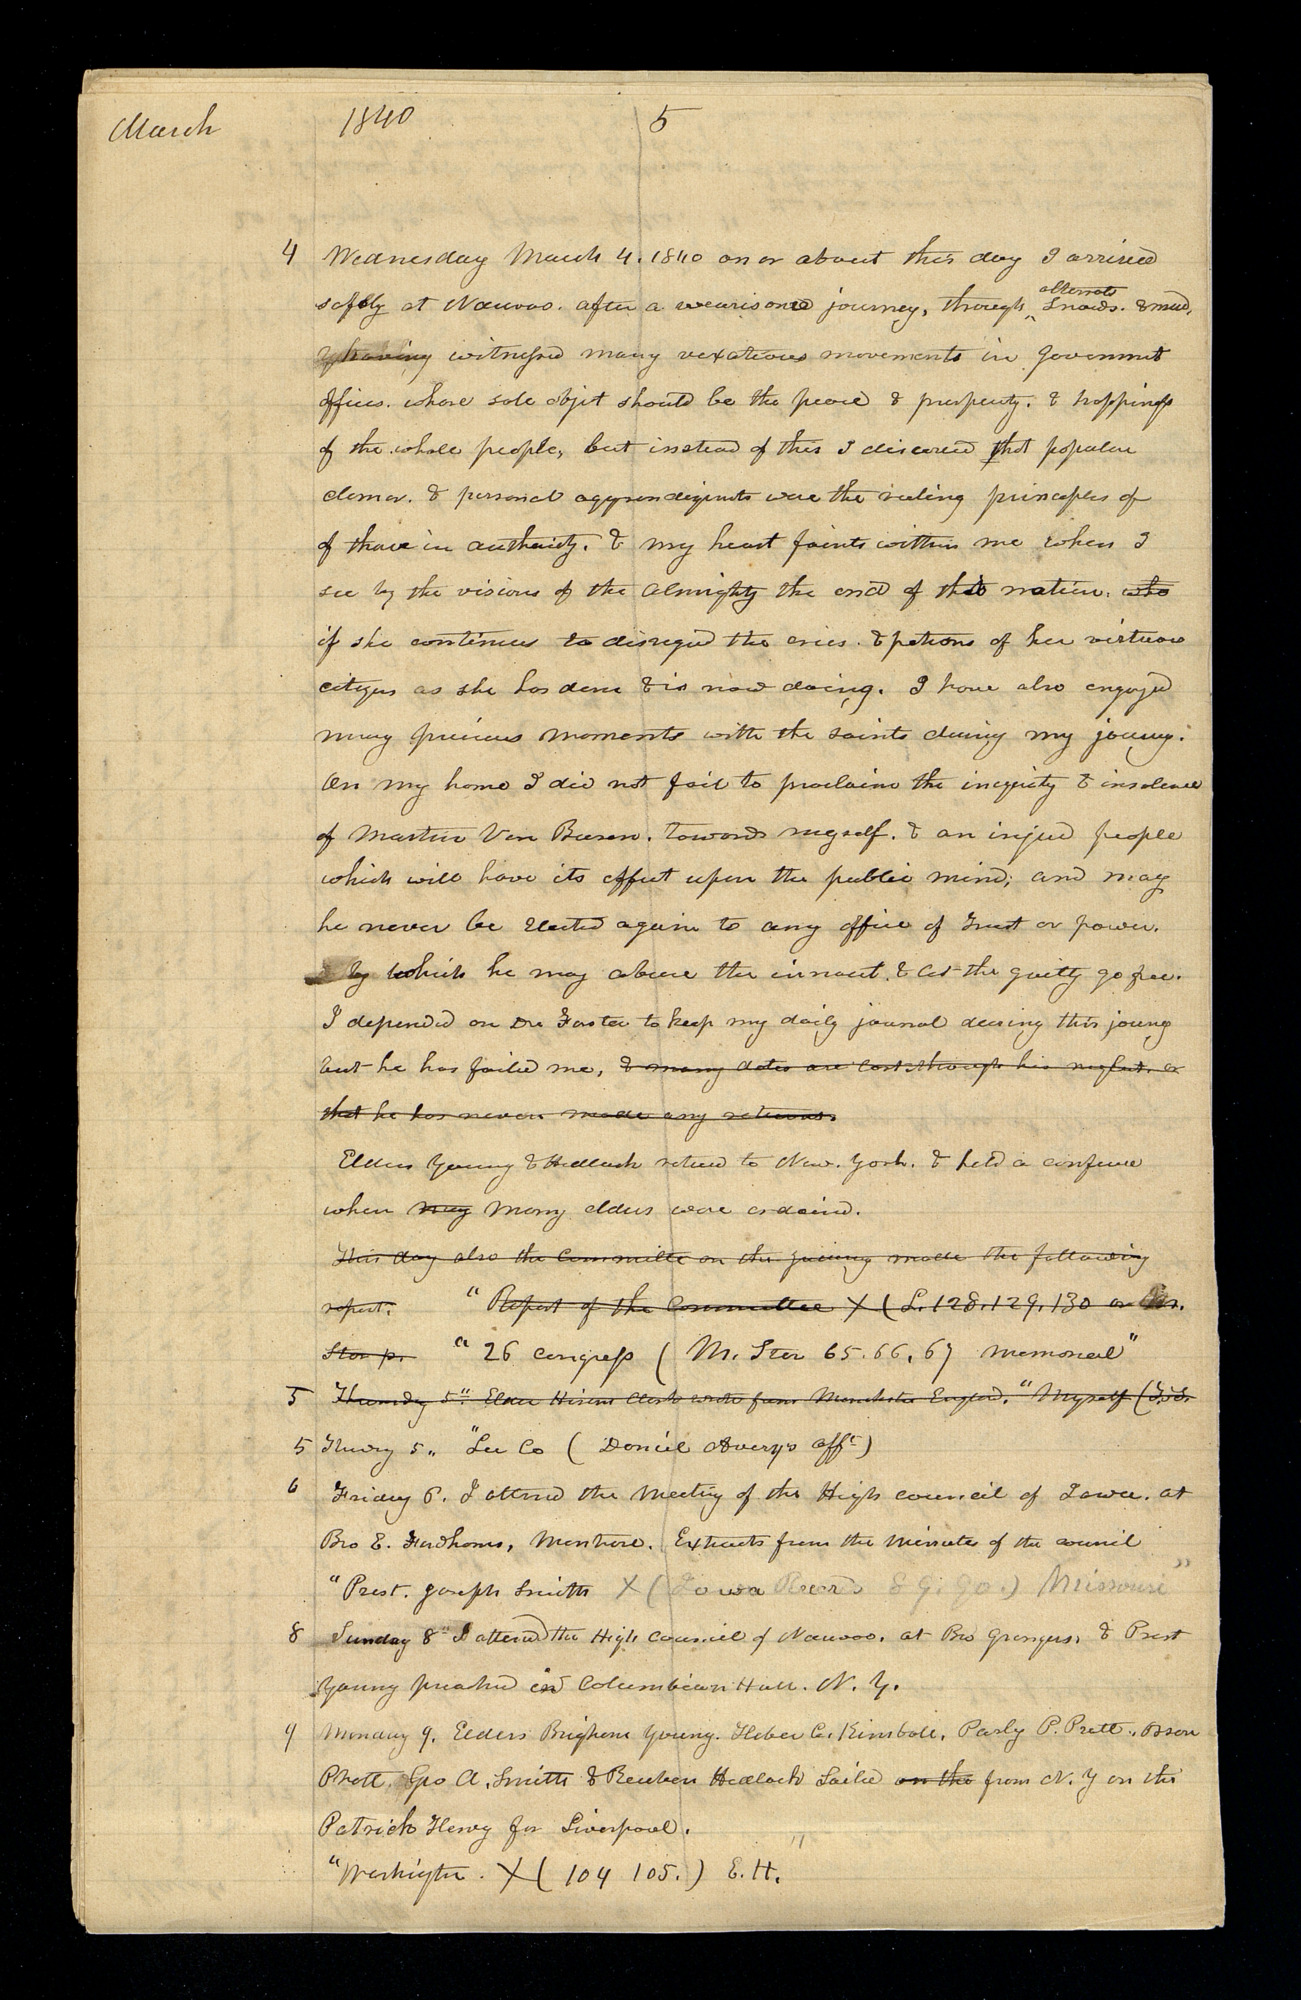 March 1840 5
4 Wednesday March 4. 1840 on or about this day I arrived
alternate
safely at Nauvoo. after a wearisome journey, through ^ Snows. & mud,
having witnessed many vexatious movements in Governmt
offices. whose sole objet should be the peace & prosperity. & happiness
of the whole people, but instead of this I discovered that popular
clamor. & personal aggrandizements were the ruling principles of
of those in authority. & my heart faints within me when I
see by the visions of the Almighty the end of this nation. who
if she continues to disregard the cries. & petitions of her virtuous
citizens as she has done & is now doing. I have also enjoyed
many precious moments with the saints during my journey.
On my home I did not fail to proclaim the iniquity & insolence
of Martin Van Buren. towards myself. & an injured people
which will have its effect upon the public mind; and may
he never be elected again to any office of trust or power.
by which he may abuse the innocent. & let the guilty go free.
I depended on Dr. Foster to keep my daily journal during this journey
but he has failed me, & many dates are lost through his neglect. or
that he has never made any returns.
Elders Young & Hedlock returned to New. York. & held a conference
when may many elders were ordained.
This day also the Committee on the Judiciary made the following
report. "Report of the Committee X (L. 128. 129. 130 or
Star p. "26 Congress ( M. Star 65. 66, 67 memorial"
5 Thursday 5th. Elder Hiram Clark wrote from Manchester England. "Myself (
5 Thursdy 5 " "Lee Co ( Daniel Avery's afft)
6 Friday 6. I attend the meeting of the High council of Iowa. at
Bro E. Fordhams, Montrose. Extracts from the Minutes of the council
"Prest. Joseph Smith X (Iowa Record 89. 90.) Missouri"
8 Sunday 8th I attend the High Council of Nauvoo. at Bro Grangers, & Prest
Young preached in Columbian Hall. N. Y.
9 Monday 9. Elders Brigham Young. Heber C. Kimball, Parly P. Pratt., Orson
Pratt. Geo A. Smith & Reuben Hedlock Sailed on the from N. Y on the
Patrick Henry for Liverpool.
"Washigton. X ( 104 105. ) E. H."